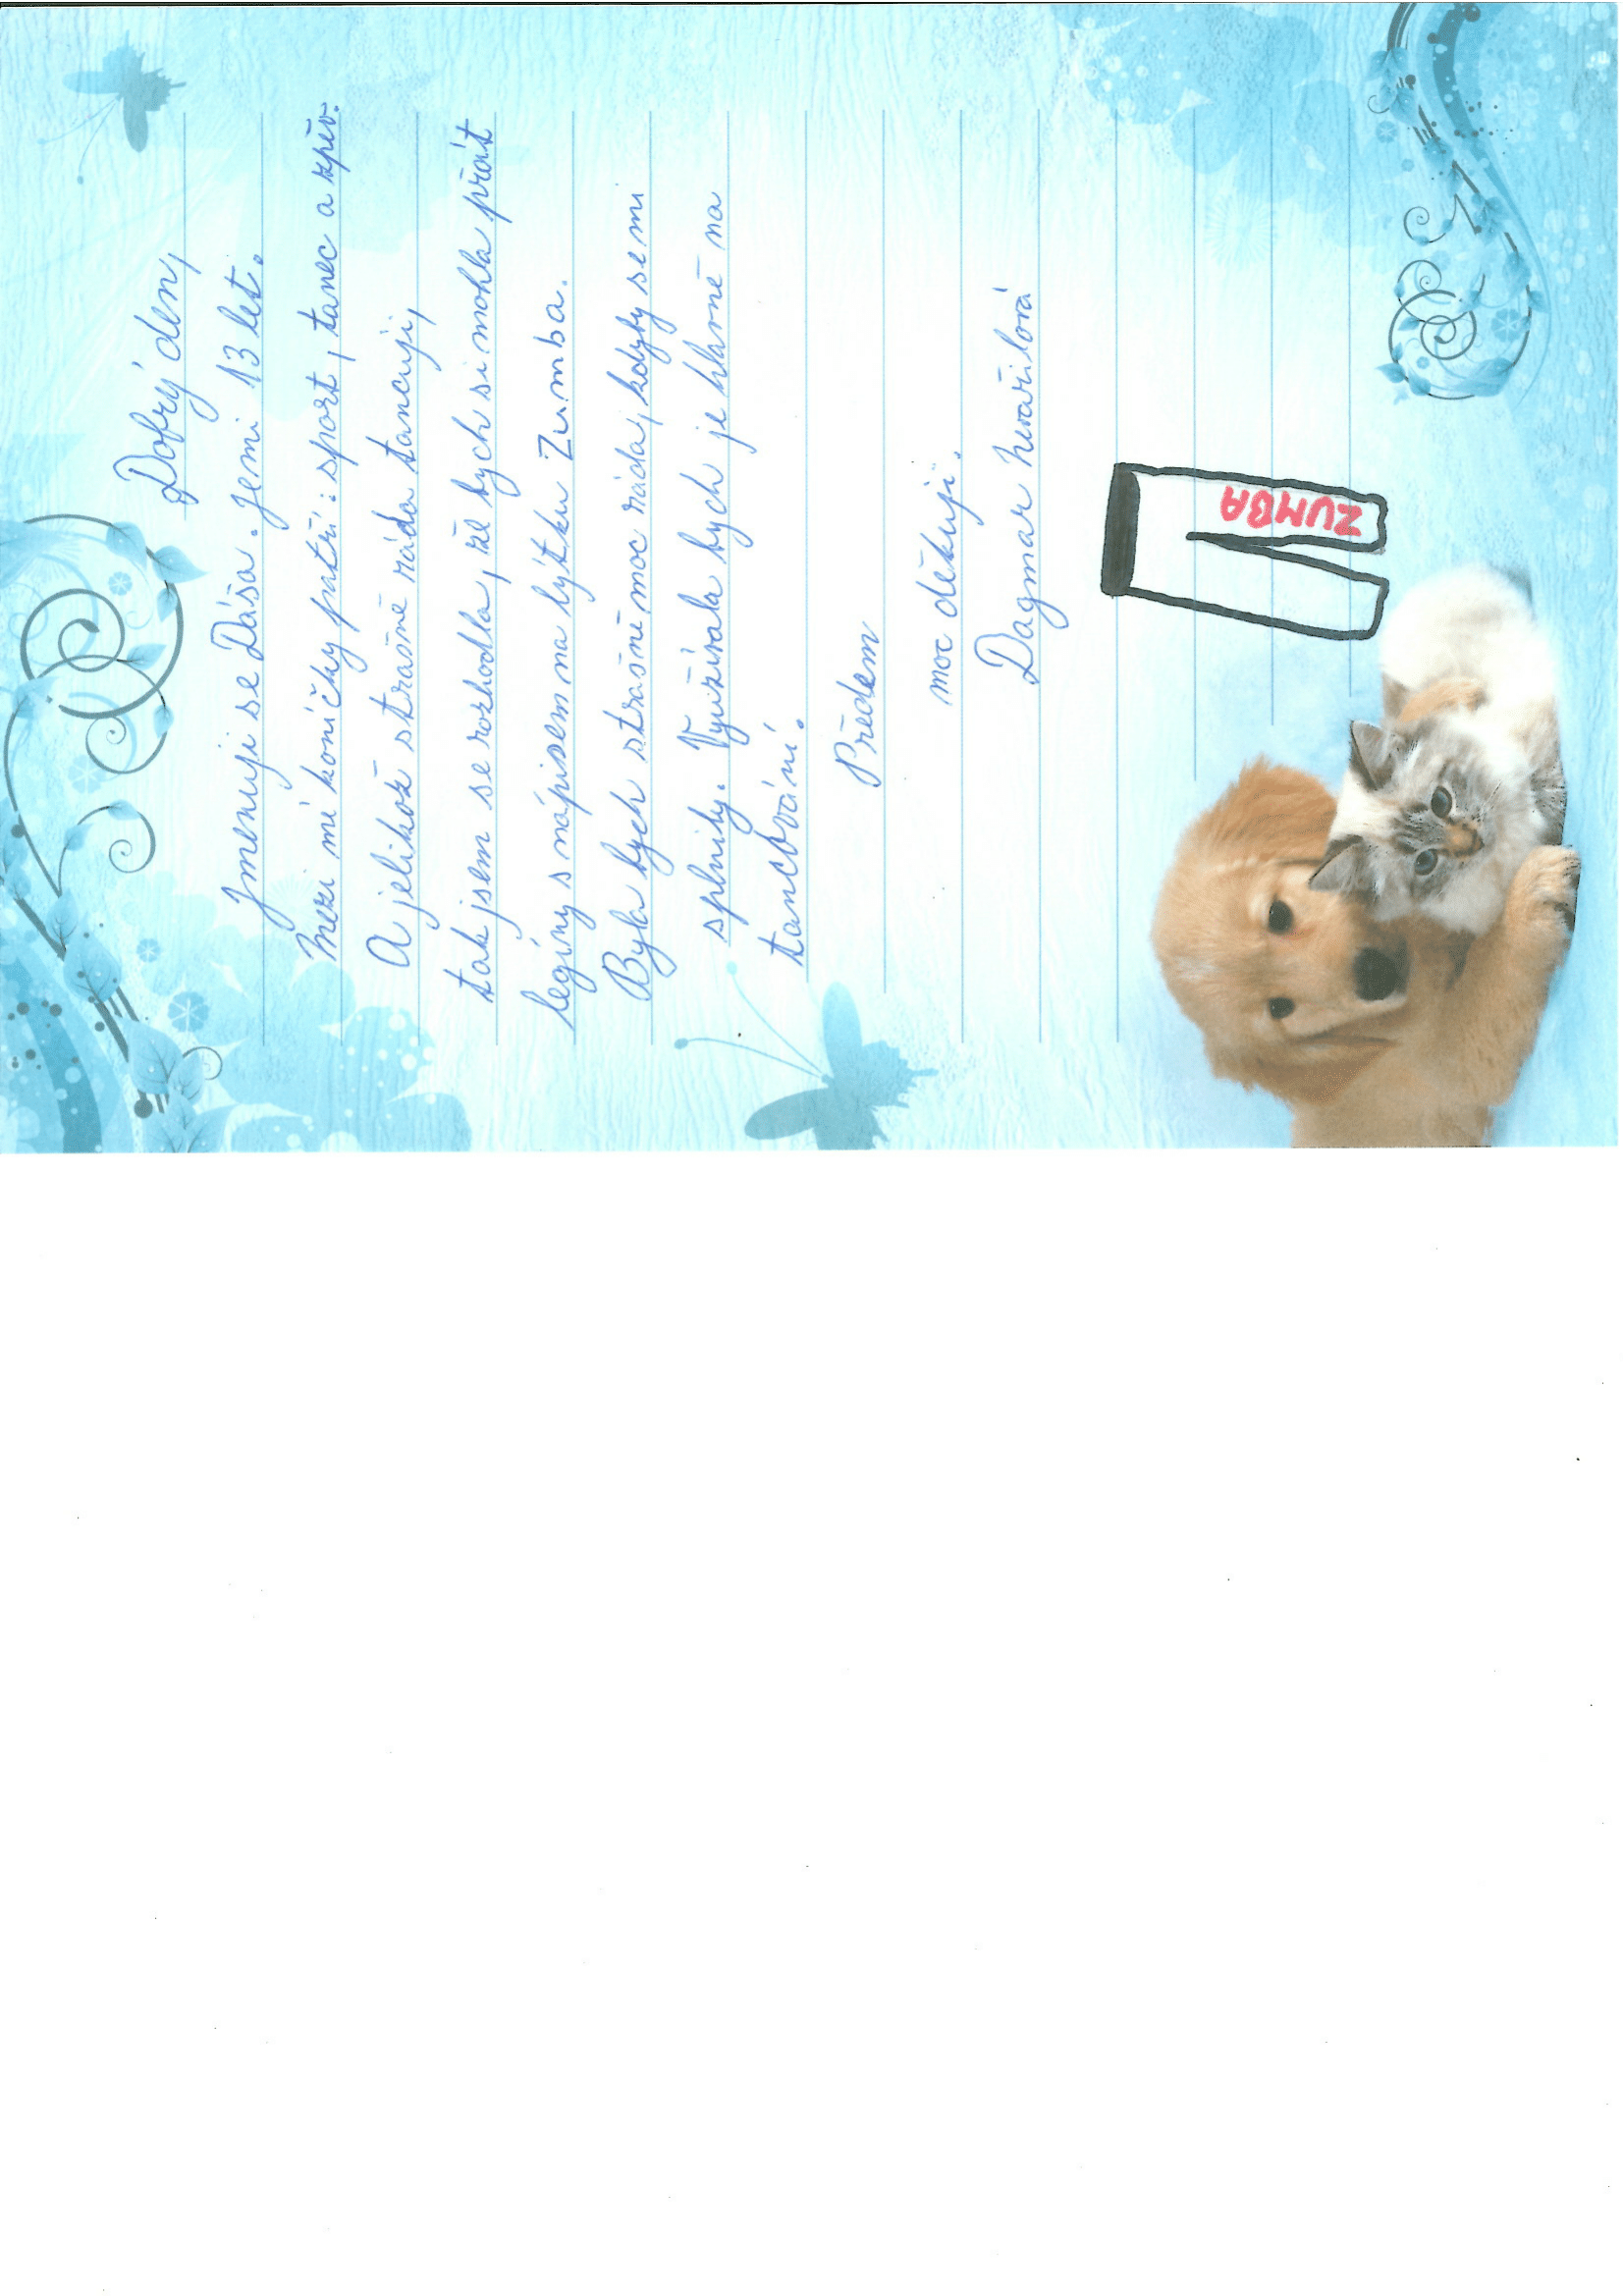 Dobrý den,
Jmenuji se Dáša. Jemi 13 let.
Mezi mé koníčky patří: sport, tanec a zpěv.
A jelikož strašně ráda tancuji,
tak jsem se rozhodla, že bych si mohla přát
legíny s nápisem na lýtku Zumba.
Byla bych strašně moc ráda, kdyby se mi
splnily. Využívala bych je hlavně na
tancování.
Předem
moc děkuji.
Dagmar
ZUMBA